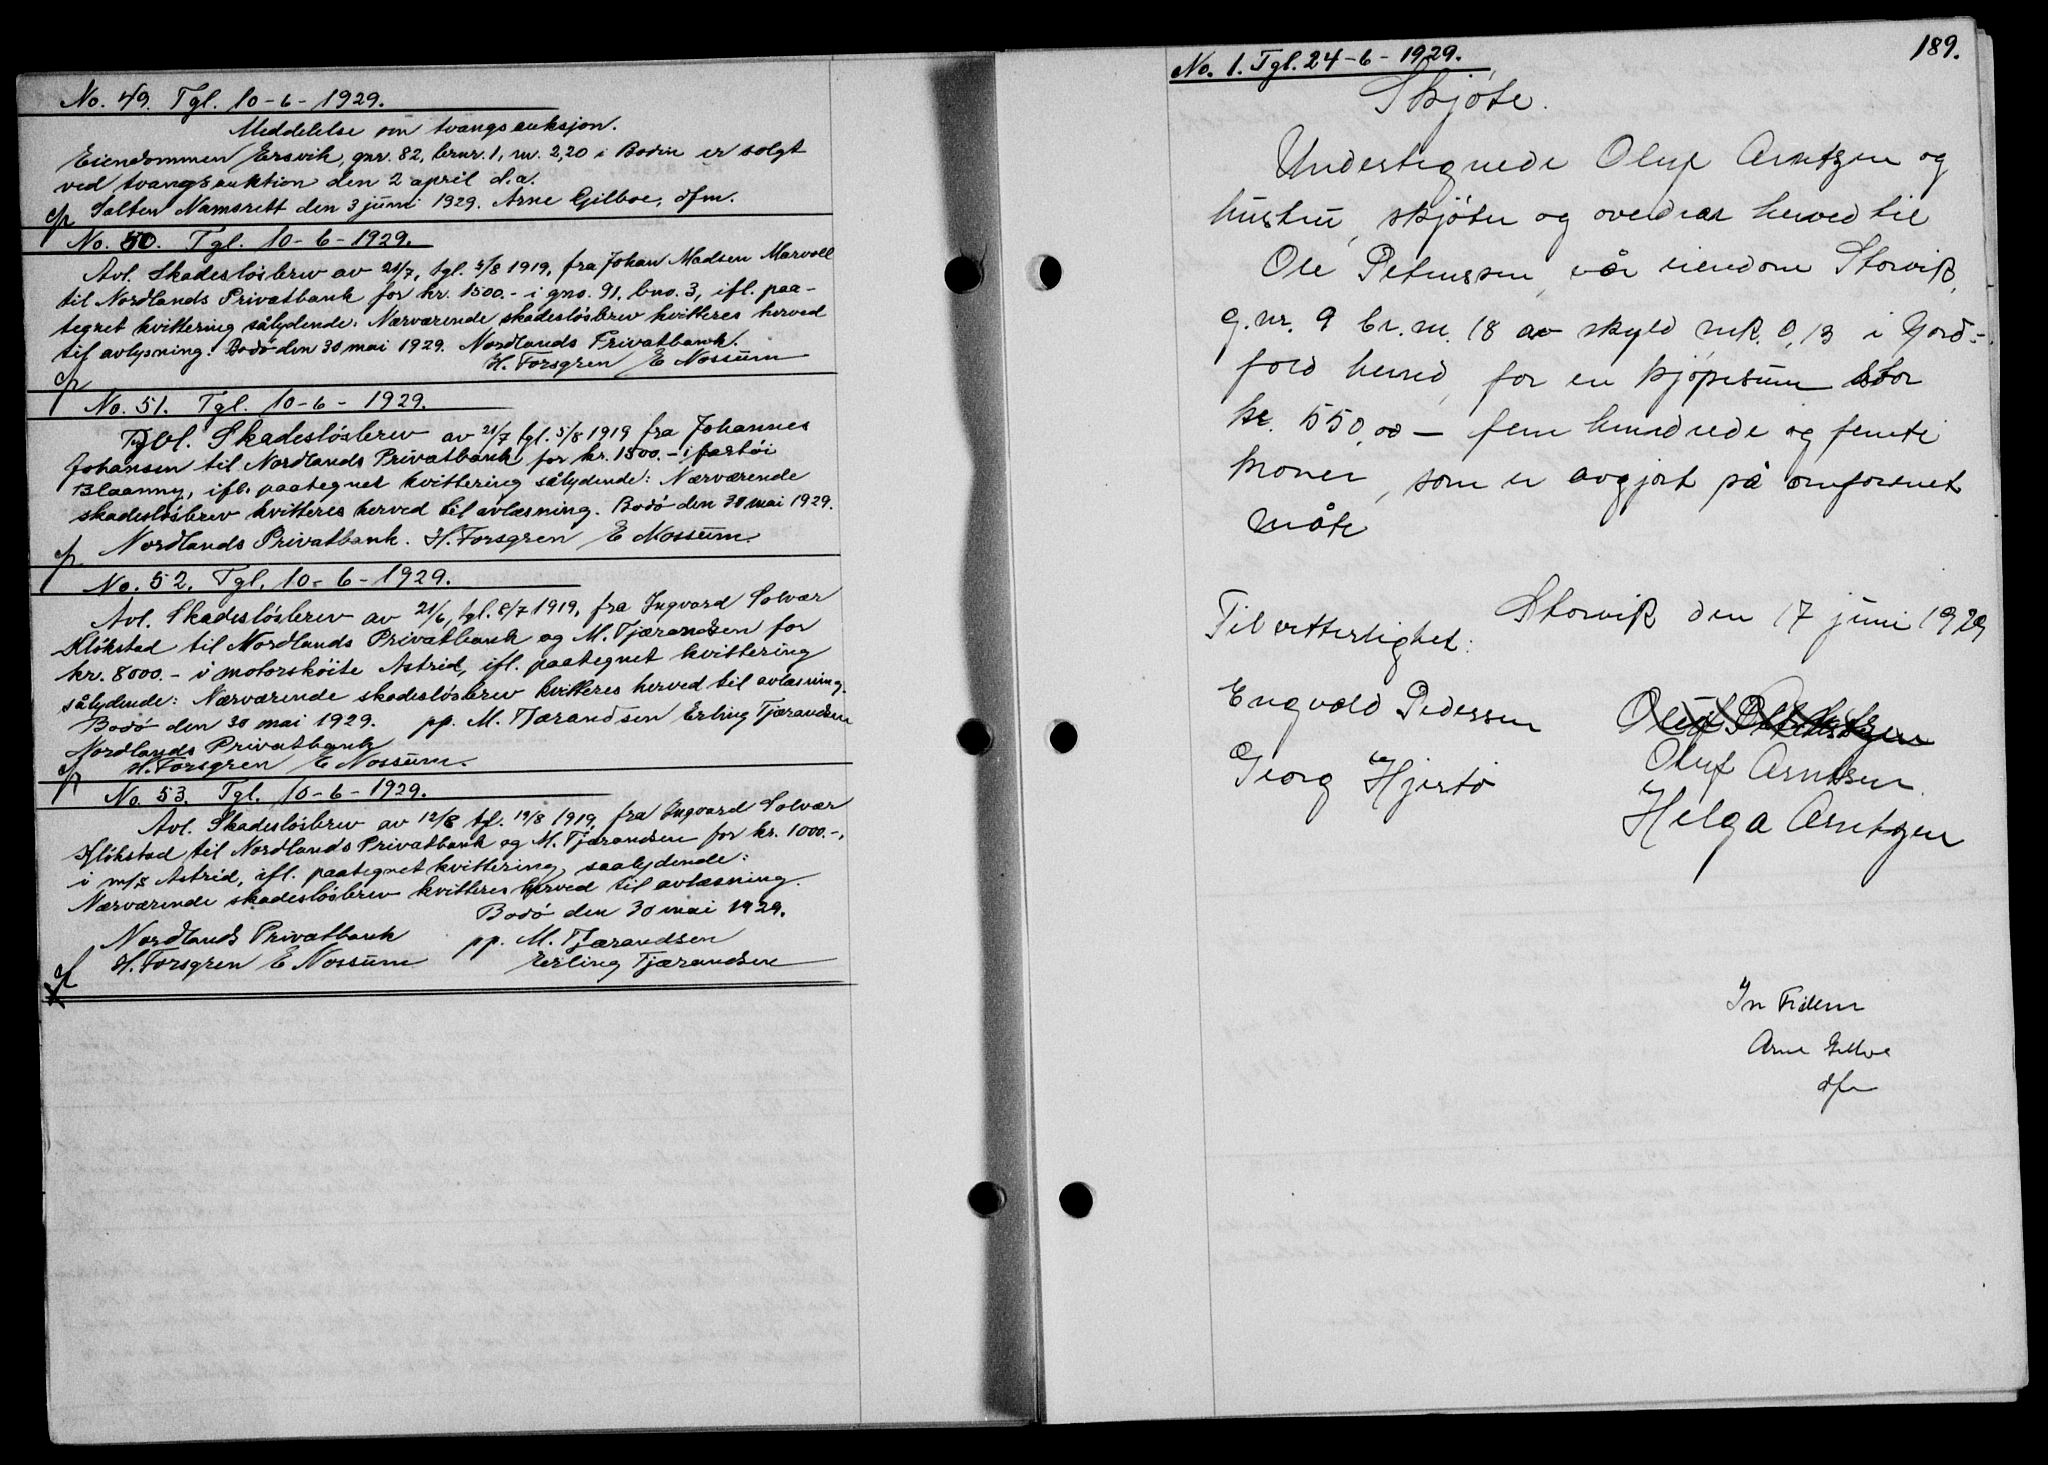 No. 49. Tgl. 10-6-1929.
Meddelelse om tvangsauksjon.
Eiendommen Ersvik, gnr. 82, brnr. 1, m. 2,20 i Bodin er solgt
ved tvangsauktion den 2 april d.a.
Salten Namsrett den 3 juni 1929. Arne Gilboe, dfm.
No. 50. Tgl. 10-6-1929.
Avl. Skadesløsbrev av 21/7, tgl. 5/8 1919, fra Johan Madsen Marvoll
til Nordlands Privatbank for kr. 1500.- i gno. 91, bno. 3, ifl. paa-
tegnet kvittering sålydende: Nærværende skadesløsbrev kvitteres herved
til avlysning. Bodø den 30 mai 1929. Nordlands Privatbank.
H. Forsgren E Nossum
No. 51. Tgl. 10-6-1929.
Avl. Skadesløsbrev av 21/7 tgl. 5/8 1919 fra Johannes
Johansen til Nordlands Privatbank for kr. 1500.- i fartøi
Blaanny, ifl. paategnet kvittering sålydende: Nærværende
skadesløsbrev kvitteres herved til avlæsning. Bodø den 30 mai 1929.
Nordlands Privatbank. H. Forsgren E Nossum.
No. 52. Tgl. 10-6-1929.
Avl. Skadesløsbrev av 21/6, tgl. 8/7 1919, fra Ingvard Solvær
Kløkstad til Nordlands Privatbank og M. Tjærandsen for
kr. 8000.- i motorskøite Astrid, ifl. paategnet kvittering
sålydende: Nærværende skadesløsbrev kvitteres herved til avlæsning.
Bodø den 30 mai 1929. pp. M. Tjærandsen Erling Tjærandsen
Nordlands Privatbank
H. Forsgren E Nossum.
No. 53. Tgl. 10-6-1929.
Avl. Skadesløsbrev av 12/8 tgl. 19/8 1919, fra Ingvard Solvær
Kløkstad til Nordlands Privatbank og M. Tjærandsen for kr. 1000.-,
i m/s Astrid, ifl. paategnet kvittering saalydende:
Nærværende skadesløsbrev kvitteres herved til avlæsning.
Bodø den 30 mai 1929.
Nordlands Privatbank pp. M. Tjærandsen
H. Forsgren E Nossum Erling Tjærandsen
189.
No. 1. Tgl. 24-6-1929.
Skjøte.
Undertegnede Oluf Arntzen og
hustru, skjøter og overdrar herved til
Ole Peterssen, vår eiendom Storvik,
g.nr. 9 br.nr. 18 av skyld mk. 0,13 i Gjord-
fold herred, for en kjøpesum stor
kr. 550,00 - fem hundrede og femti
kroner, som er avgjort på omforenet
måte
Storvik den 17 juni 1929
Til vitterlighet:
Engvald Pedersen
Georg Hjertø
Oluf Arntsen.
Helga Arntzen
In Fidem
Arne Gilboe
dfm